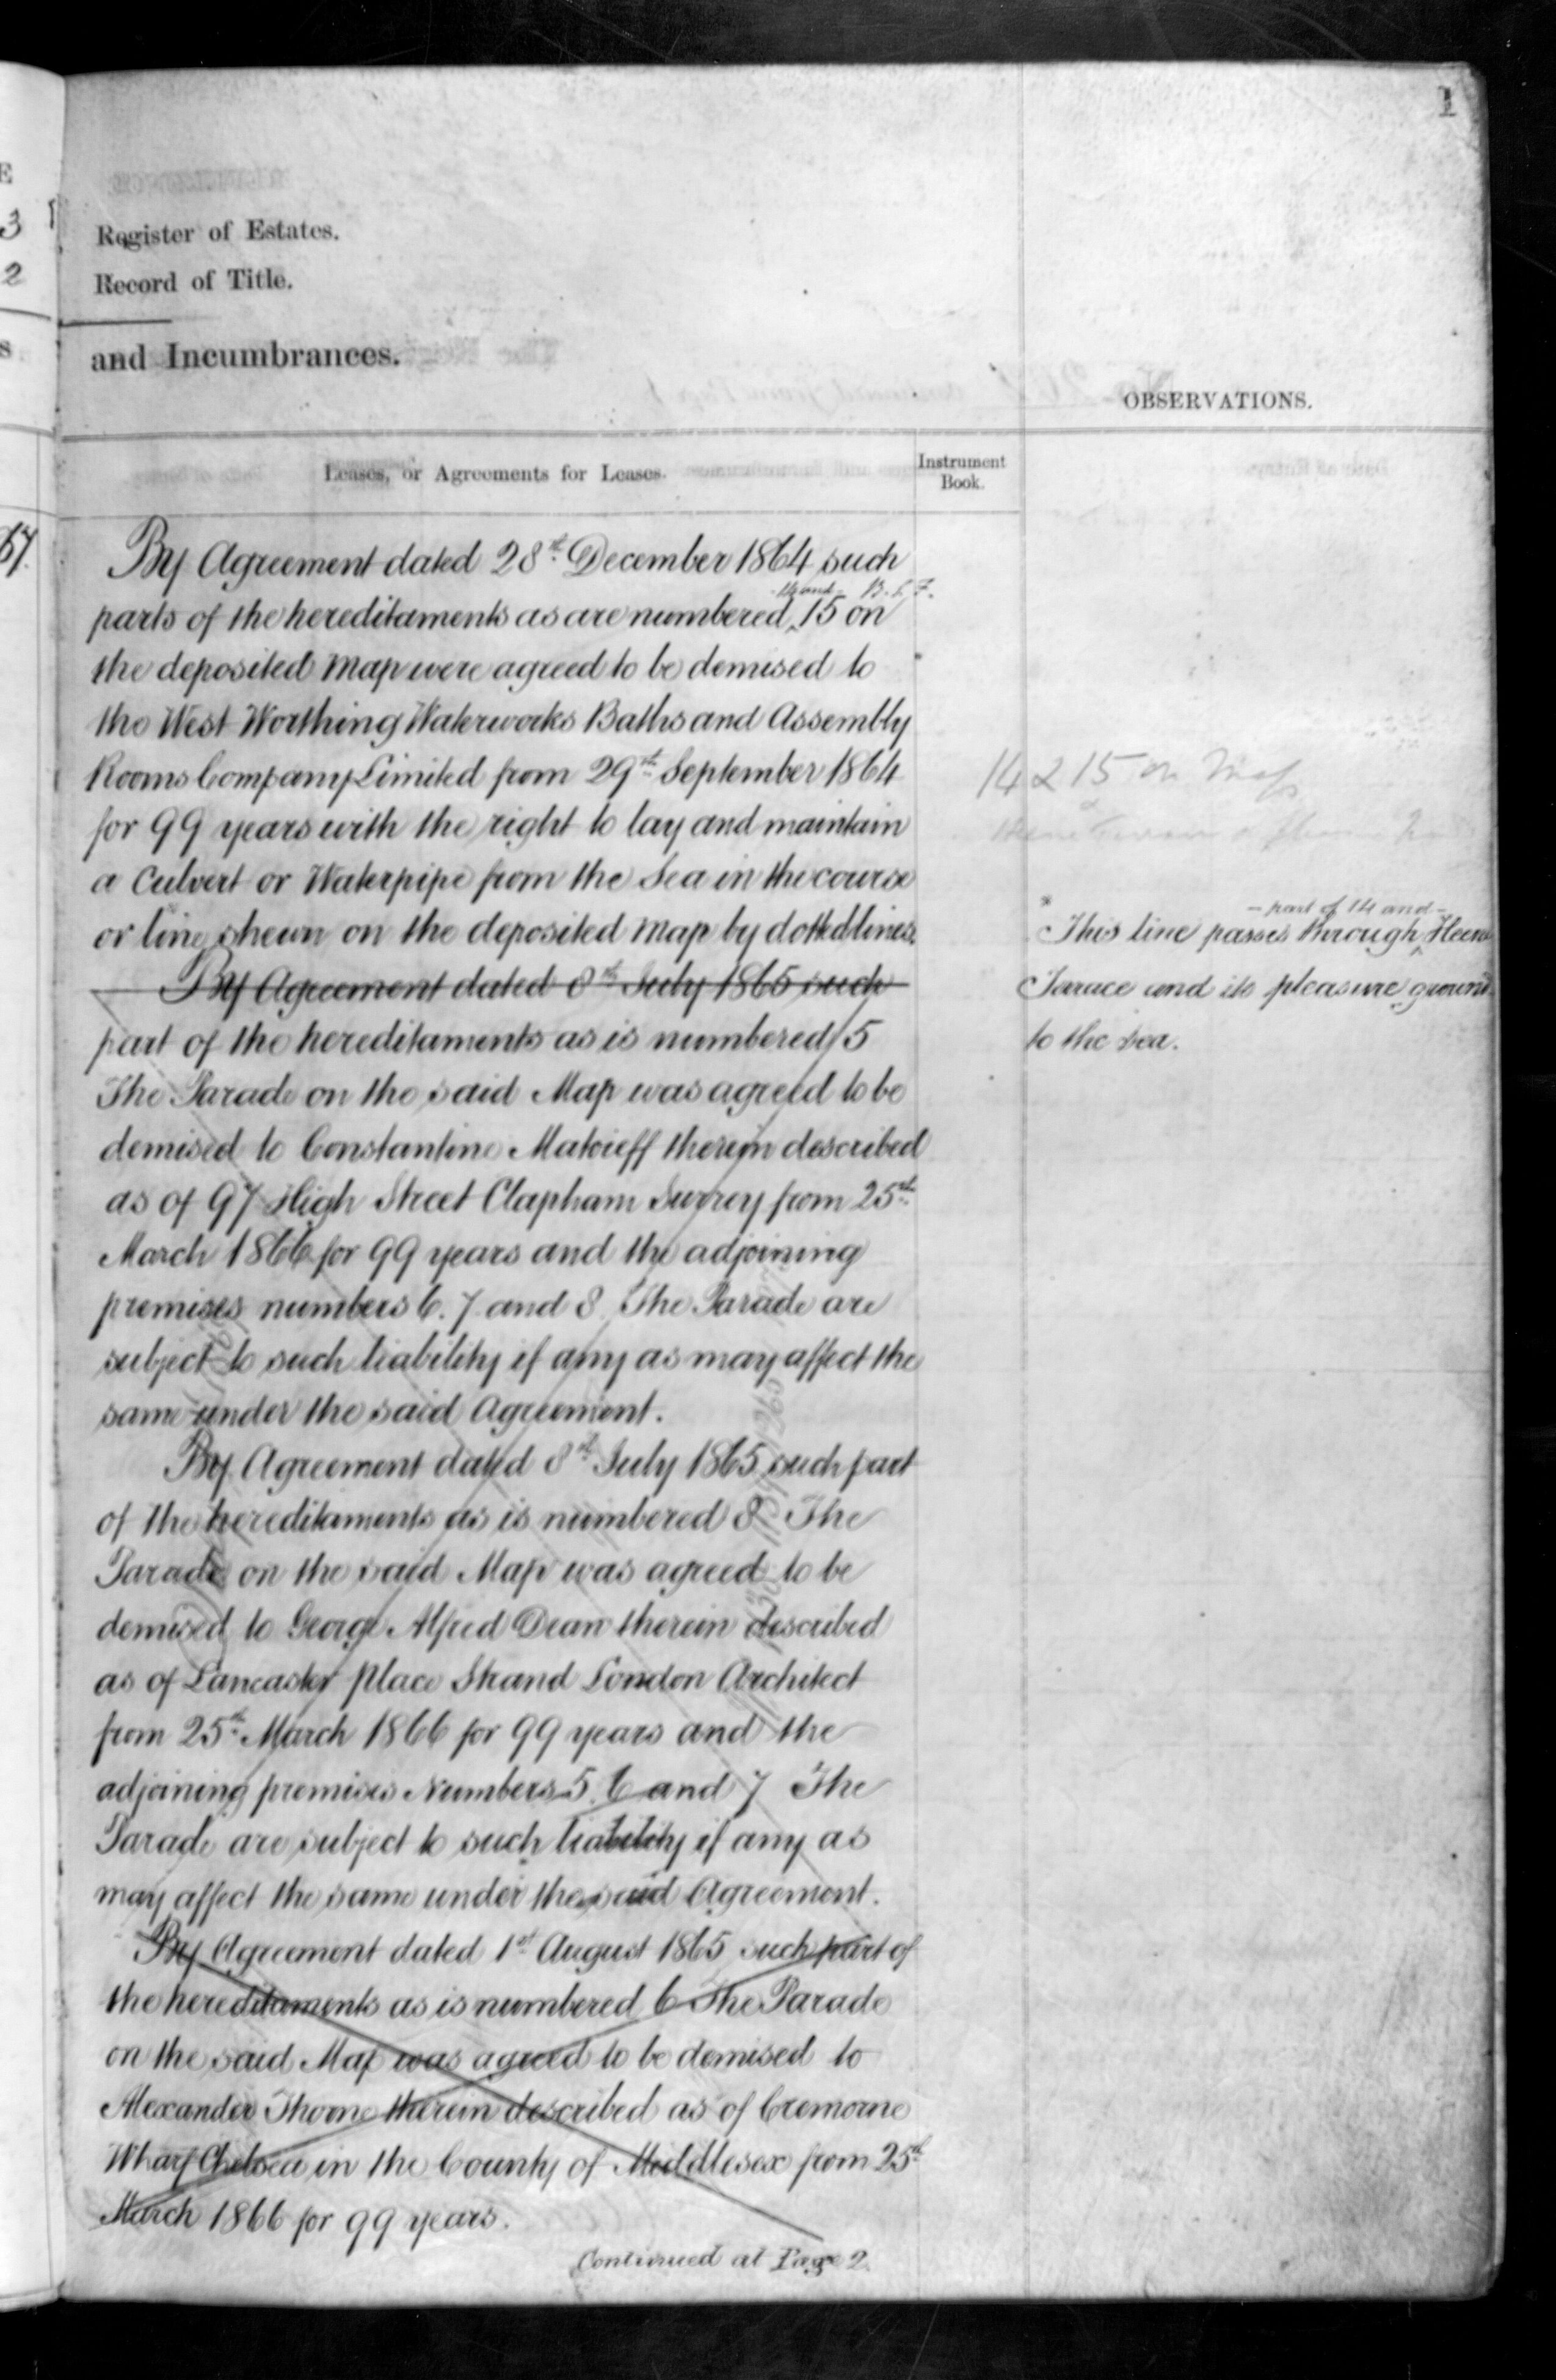 1
Register of Estates.
Record of Title.
and Incumbrances.
OBSERVATIONS.
Leases, or Agreements for Leases.
Instrument
Book.
By Agreement dated 28th December 1864 such
14 and B.L.F.
parts of the hereditaments as are numbered 15 on
the deposited Map were agreed to be demised to
the West Worthing Waterworks Baths and Assembly
Rooms Company Limited from 29th September 1864
for 99 years with the right to lay and maintain
a Culvert or Waterpipe from the Sea in the course
or line shewn on the deposited Map by dotted lines.
By Agreement dated 8th July 1865 such
part of the hereditaments as is numbered 5
The Parade on the said Map was agreed to be
demised to Constantine Matvieff therein described
as of 97 High Street Clapham Surrey from 25th
March 1866 for 99 years and the adjoining
premises numbers 6. 7 and 8 The Parade are
subject to such liability if any as may affect the
same under the said Agreement.
By Agreement dated 8th July 1865 such part
of the hereditaments as is numbered 8 The
Parade on the said Map was agreed to be
demised to George Alfred Dean therein described
as of Lancaster Place Strand London Architect
from 25th March 1866 for 99 years and the
adjoining premises Numbers 5. 6 and 7 The
Parade are subject to such liability if any as
may affect the same under the said Agreement.
By Agreement dated 1st August 1865 such part of
the hereditaments as is numbered 6 The Parade
on the said Map was agreed to be demised to
Alexander Thorne therein described as of Cremorne
Wharf Chelsea in the County of Middlesex from 25th
March 1866 for 99 years.
Continued at Page 2.
14 & 15 on Map
- part of 14 and -
This line passes through Heene
Terrace and its pleasure ground
to the sea.